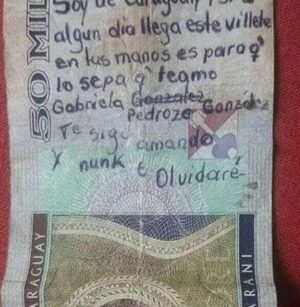 Soy de Caraguay, si
algun dia llega este villete
en tus manos es para q'
lo sepa q' te amo
Gabriela Gonzalez
Pedrozo González
Te sigo amando
y nunk t Olvidaré-
50 MIL
ARAGUAY
ARANI